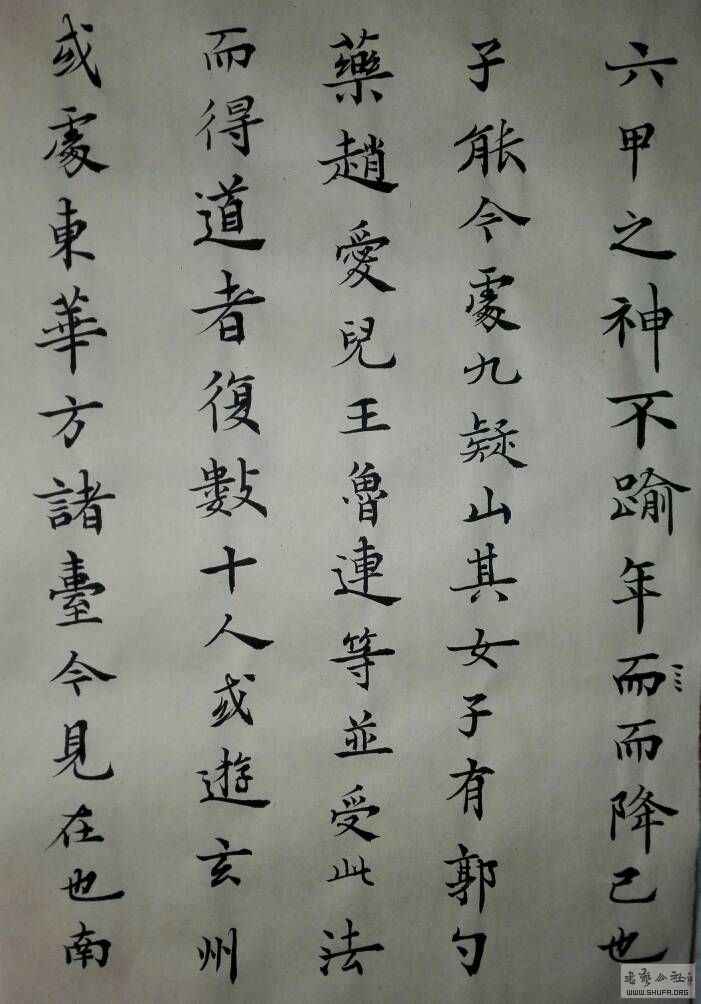 六甲之神不踰年而而降己也
子能令處九疑山其女子有郭勺
藥趙愛兒王魯連等並受此法
而得道者復數十人或遊玄州
或處東華方諸臺今見在也南
书艺公社
WWW.SHUFA.ORG